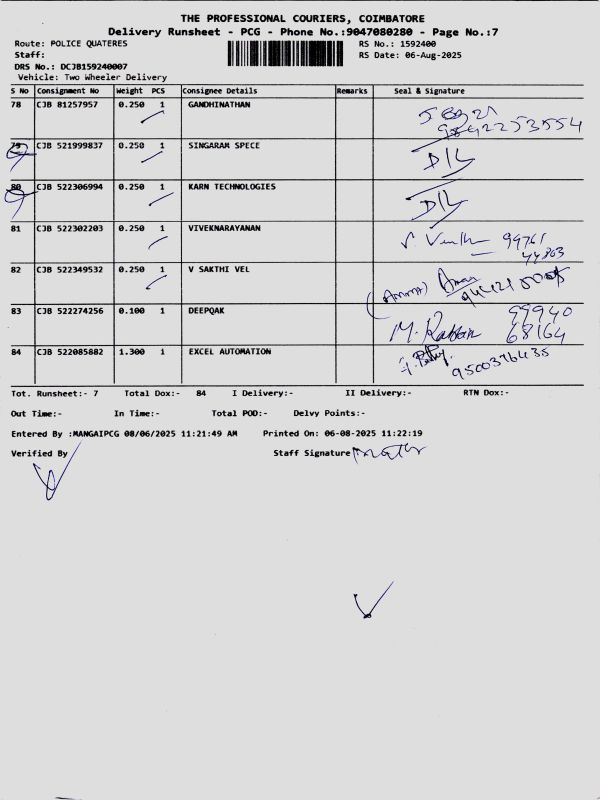 THE PROFESSIONAL COURIERS, COIMBATORE
Delivery Runsheet - PCG - Phone No.:9047080280 - Page No.:7
Route: POLICE QUATERES RS No.: 1592400
Staff: RS Date: 06-Aug-2025
DRS No.: DCJB159240007
Vehicle: Two Wheeler Delivery
S No Consignment No Weight PCS Consignee Details Remarks Seal & Signature
78 CJB 81257957 0.250 1 GANDHINATHAN
9842253554
79 CJB 521999837 0.250 1 SINGARAM SPECE D/L
80 CJB 522306994 0.250 1 KARN TECHNOLOGIES D/L
81 CJB 522302203 0.250 1 VIVEKNARAYANAN 99761
44803
82 CJB 522349532 0.250 1 V SAKTHI VEL (AMMA)
83 CJB 522274256 0.100 1 DEEPQAK 99940
68164
84 CJB 522085882 1.300 1 EXCEL AUTOMATION 9500396435
Tot. Runsheet:- 7 Total Dox:- 84 I Delivery:- II Delivery:- RTN Dox:-
Out Time:- In Time:- Total POD:- Delvy Points:-
Entered By :MANGAIPCG 08/06/2025 11:21:49 AM Printed On: 06-08-2025 11:22:19
Verified By Staff Signature